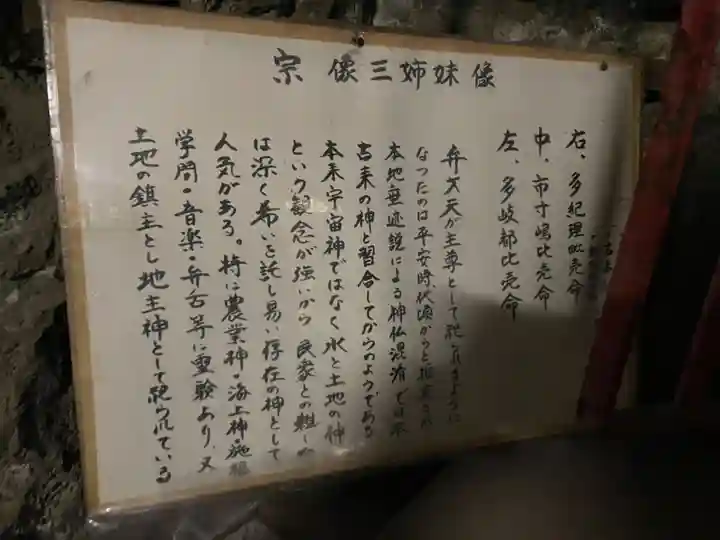 宗像三姉妹像
右、多紀理毗売命
中、市寸嶋比売命
左、多岐都比売命
弁才天が主尊として祀られるように
なつたのは平安時代頃からと推定され
本地垂迹説による神仏混淆で日本
古来の神と習合してからのようである
本来宇宙神ではなく水と土地の神
という観念が強いから 民家との親しみ
は深く希いを託し易い存在の神として
人気がある。特に農業神・海上神・施福
学問・音楽・弁舌等に霊験あり、又
土地の鎮主とし地主神として祀られている